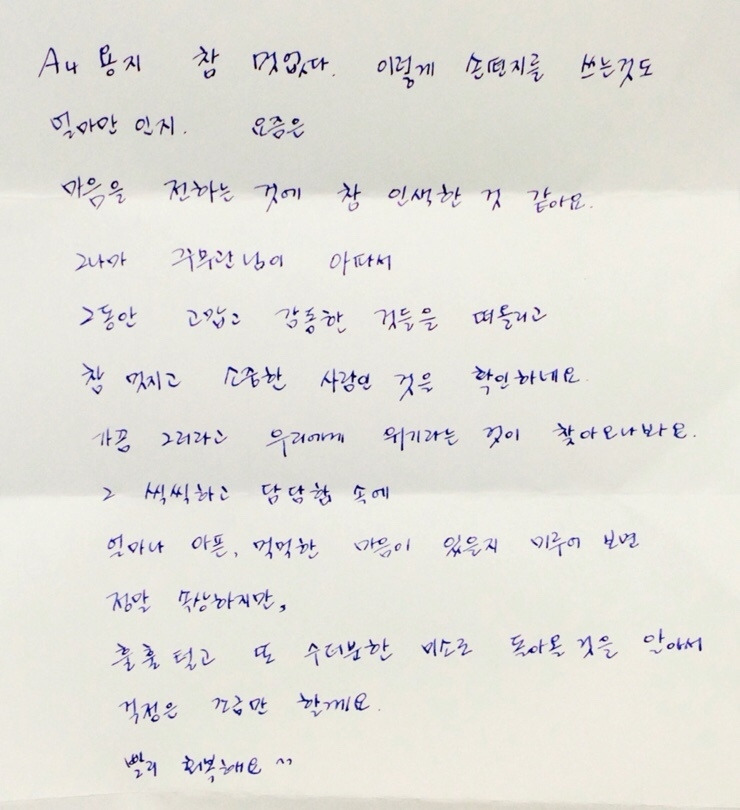 A4 용지 참 멋없다. 이렇게 손편지를 쓰는것도
얼마만 인지. 요즘은
마음을 전하는 것에 참 인색한 것 같아요.
그나마 주무관님이 아파서
그동안 고맙고 감동한 것들을 떠올리고
참 멋지고 소중한 사람인 것을 확인하네요.
가끔 그러라고 우리에게 위기라는 것이 찾아오나봐요.
그 씩씩하고 담담함 속에
얼마나 아픈, 먹먹한 마음이 있을지 미루어 보면
정말 속상하지만,
훌훌 털고 또 수더분한 미소로 돌아올 것을 알아서
걱정은 조금만 할게요.
빨리 회복해요 ^^